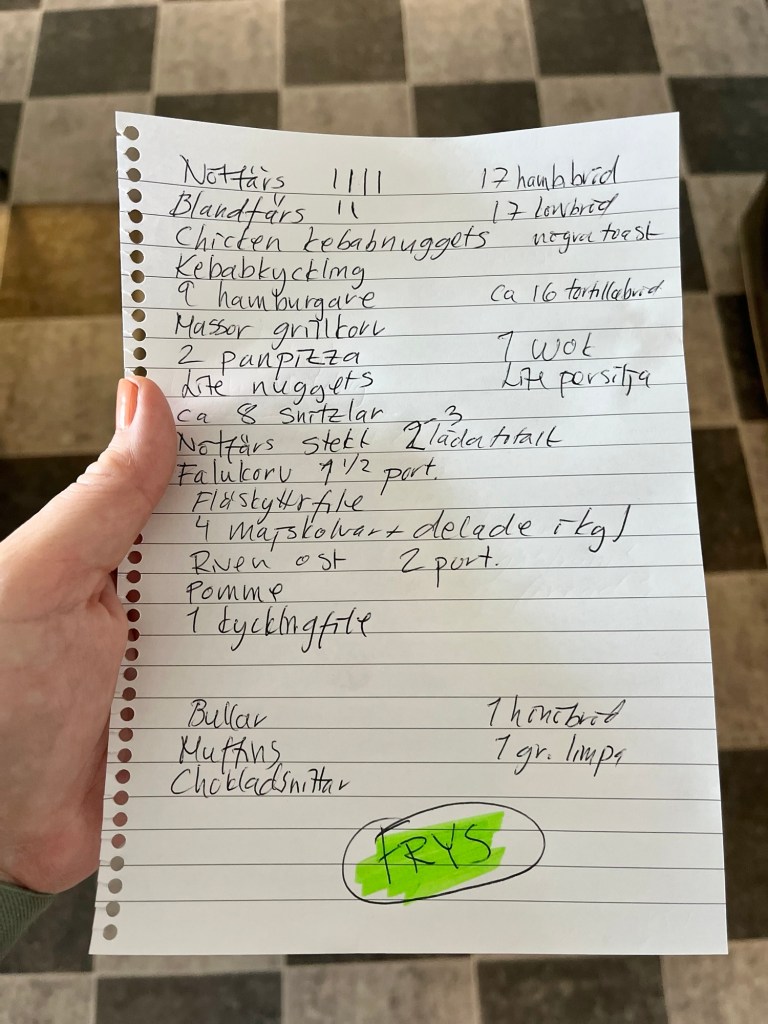 Nötfärs IIII 17 hambbröd
Blandfärs II 17 lovbröd
Chicken kebabnuggets några toast
Kebabkyckling
9 hamburgare ca 16 tortillabröd
Massor grillkorv
2 panpizza 1 wok
Lite nuggets Lite persilja
ca 8 snitzlar
Nötfärs stekt 2-3 låda totalt
Falukorv 1 1/2 port.
Fläskytterfile
4 majskolvar + delade 1 kg
Riven ost 2 port.
Pomme
1 kycklingfile
Bullar 1 hönöbröd
Muffins 1 gr. limpa
Chokladsnittar
FRYS